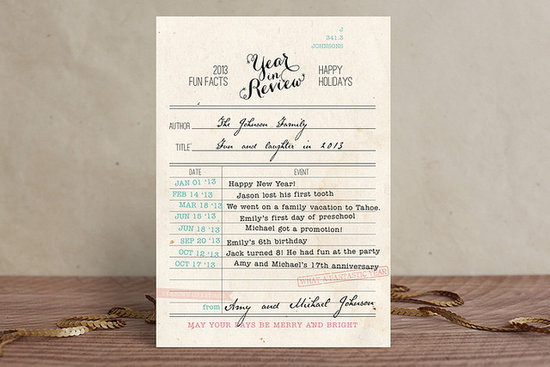 J
341.3
JOHNSONS
2013
FUN FACTS
Year
in
Review
HAPPY
HOLIDAYS
AUTHOR The Johnson Family
TITLE Fun and laughter in 2013
DATE EVENT
JAN 01 '13 Happy New Year!
FEB 14 '13 Jason lost his first tooth
MAR 18 '13 We went on a family vacation to Tahoe.
JUN 15 '13 Emily's first day of preschool
JUN 18 '13 Michael got a promotion!
SEP 20 '13 Emily's 6th birthday
OCT 12 '13 Jack turned 8! He had fun at the party
OCT 17 '13 Amy and Michael's 17th anniversary
WHAT A FANTASTIC YEAR
from Amy and Michael Johnson
MAY YOUR DAYS BE MERRY AND BRIGHT